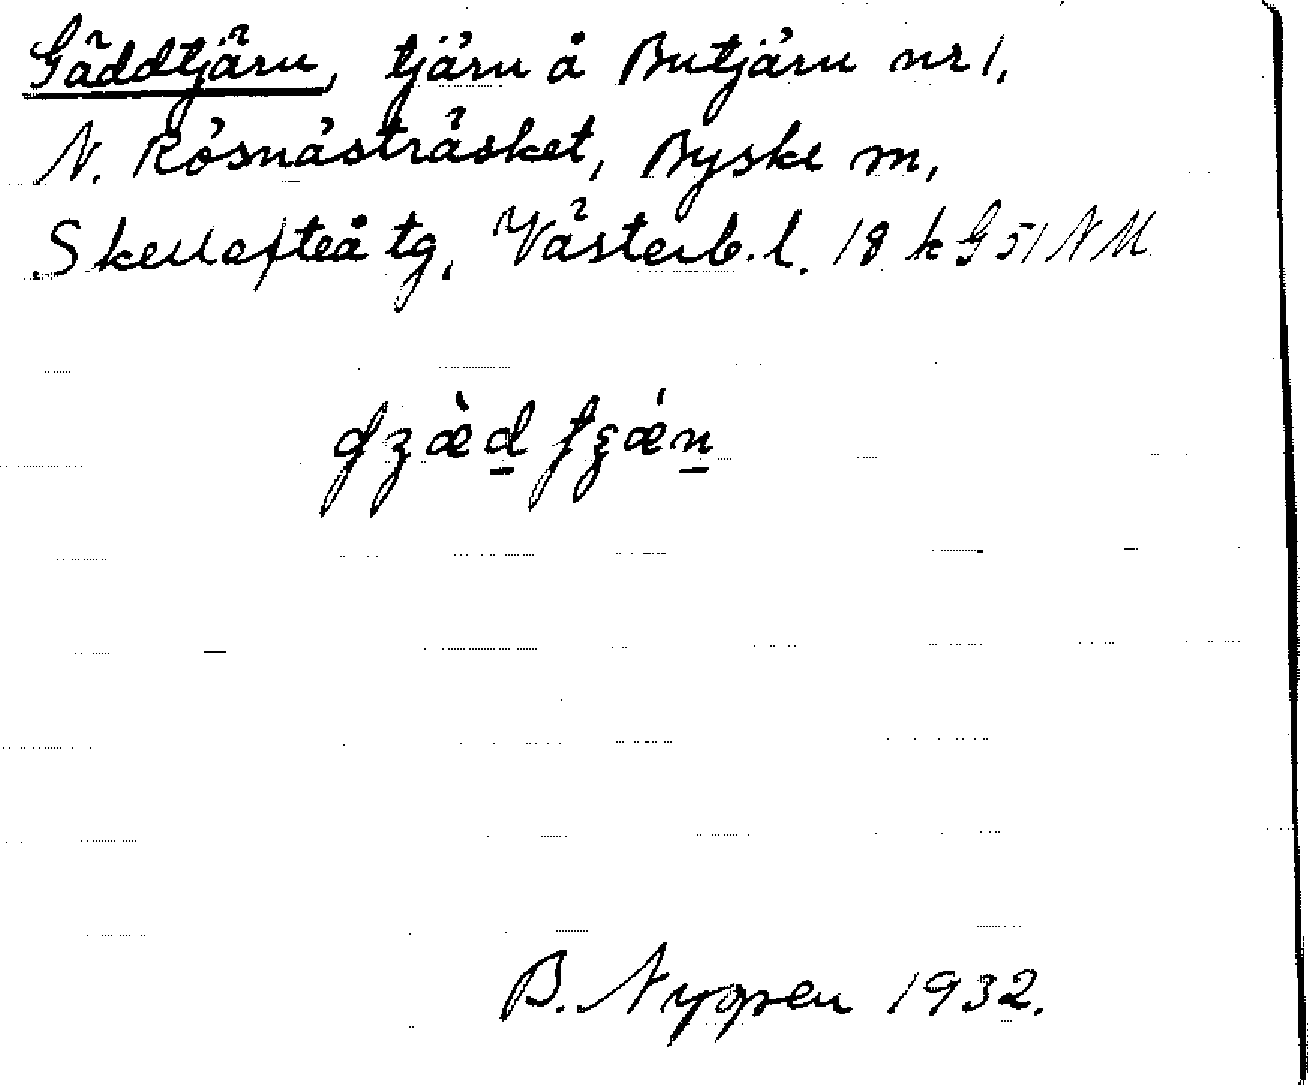 Gäddtjärn, tjärn å Butjärn nr 1,
N. Rösnästräsket, Byske sn,
Skellefteå tg, Västerb. l. 18 k G 51 N M
B. Nygren 1932.